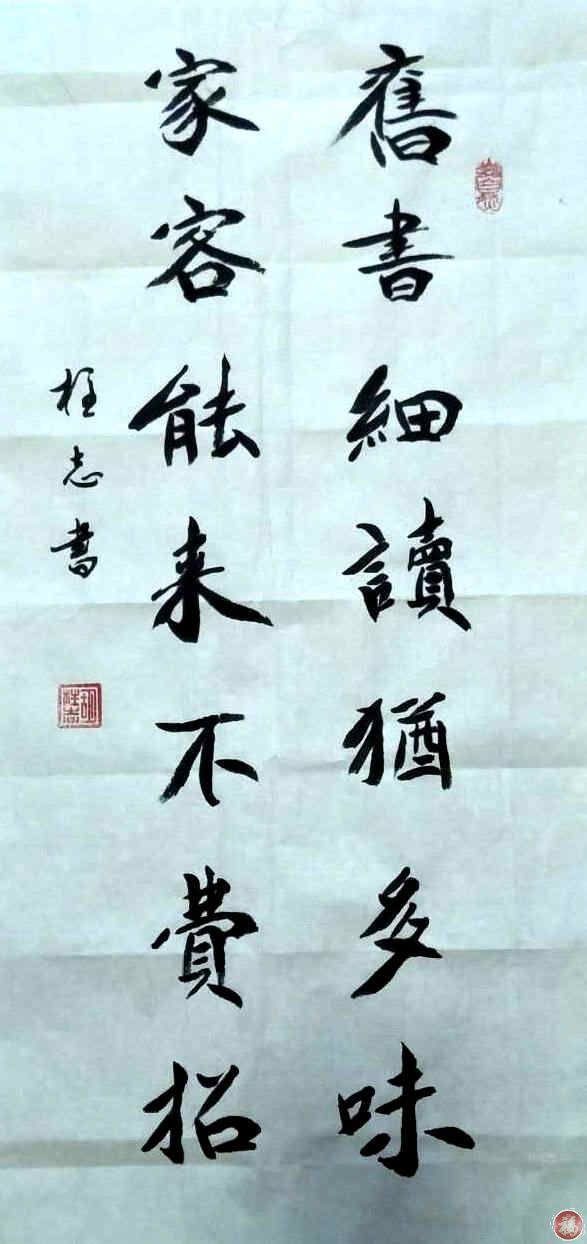 舊書細讀猶多味
家客能来不費招
桂志書
福